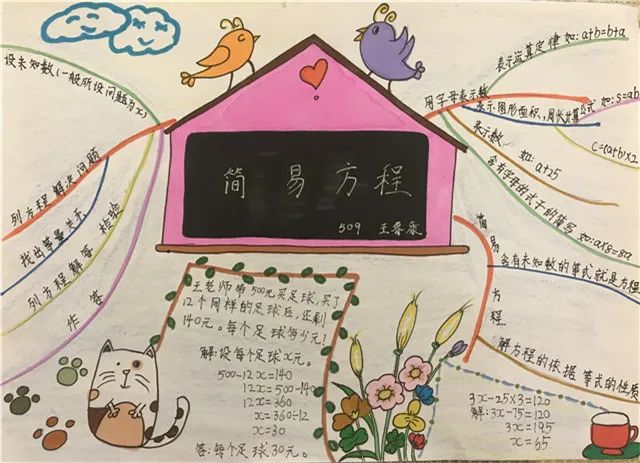 简易方程
509 王春康
设未知数(一般所设问题为x)
列方程解决问题
找出等量关系
列方程解答
检验
作答
用字母表示数
表示运算定律 如:a+b=b+a
表示图形面积,周长计算公式 如:s=ab
C=(a+b)×2
表示数 如:a+25
含有字母的式子的简写 如:a×8=8a
简易方程
含有未知数的等式就是方程
解方程的依据 等式的性质
王老师带500元买足球,买了
12个同样的足球后,还剩
140元。每个足球多少元?
解:设每个足球x元。
500-12x=140
12x=500-140
12x=360
x=360÷12
x=30
答:每个足球30元。
3x-25×3=120
解:3x-75=120
3x=195
x=65